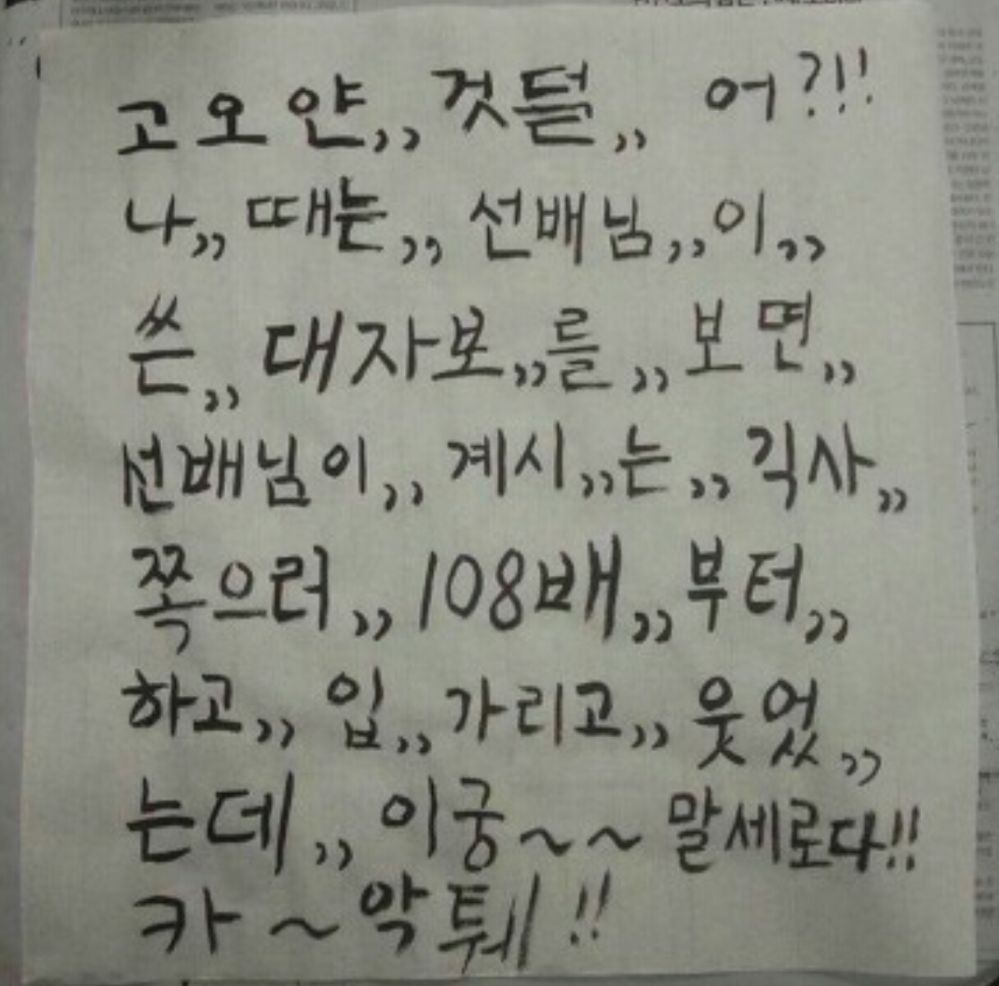 고오얀,, 것들,, 어?!!
나,, 때는,, 선배님,,이,,
쓴,, 대자보,,를,, 보면,,
선배님이,, 계시,,는,, 긱사,,
쪽으러,, 108배,,부터,,
하고,, 입,, 가리고,, 웃었,,
는데,, 이궁~~ 말세로다!!
카~악퉤!!